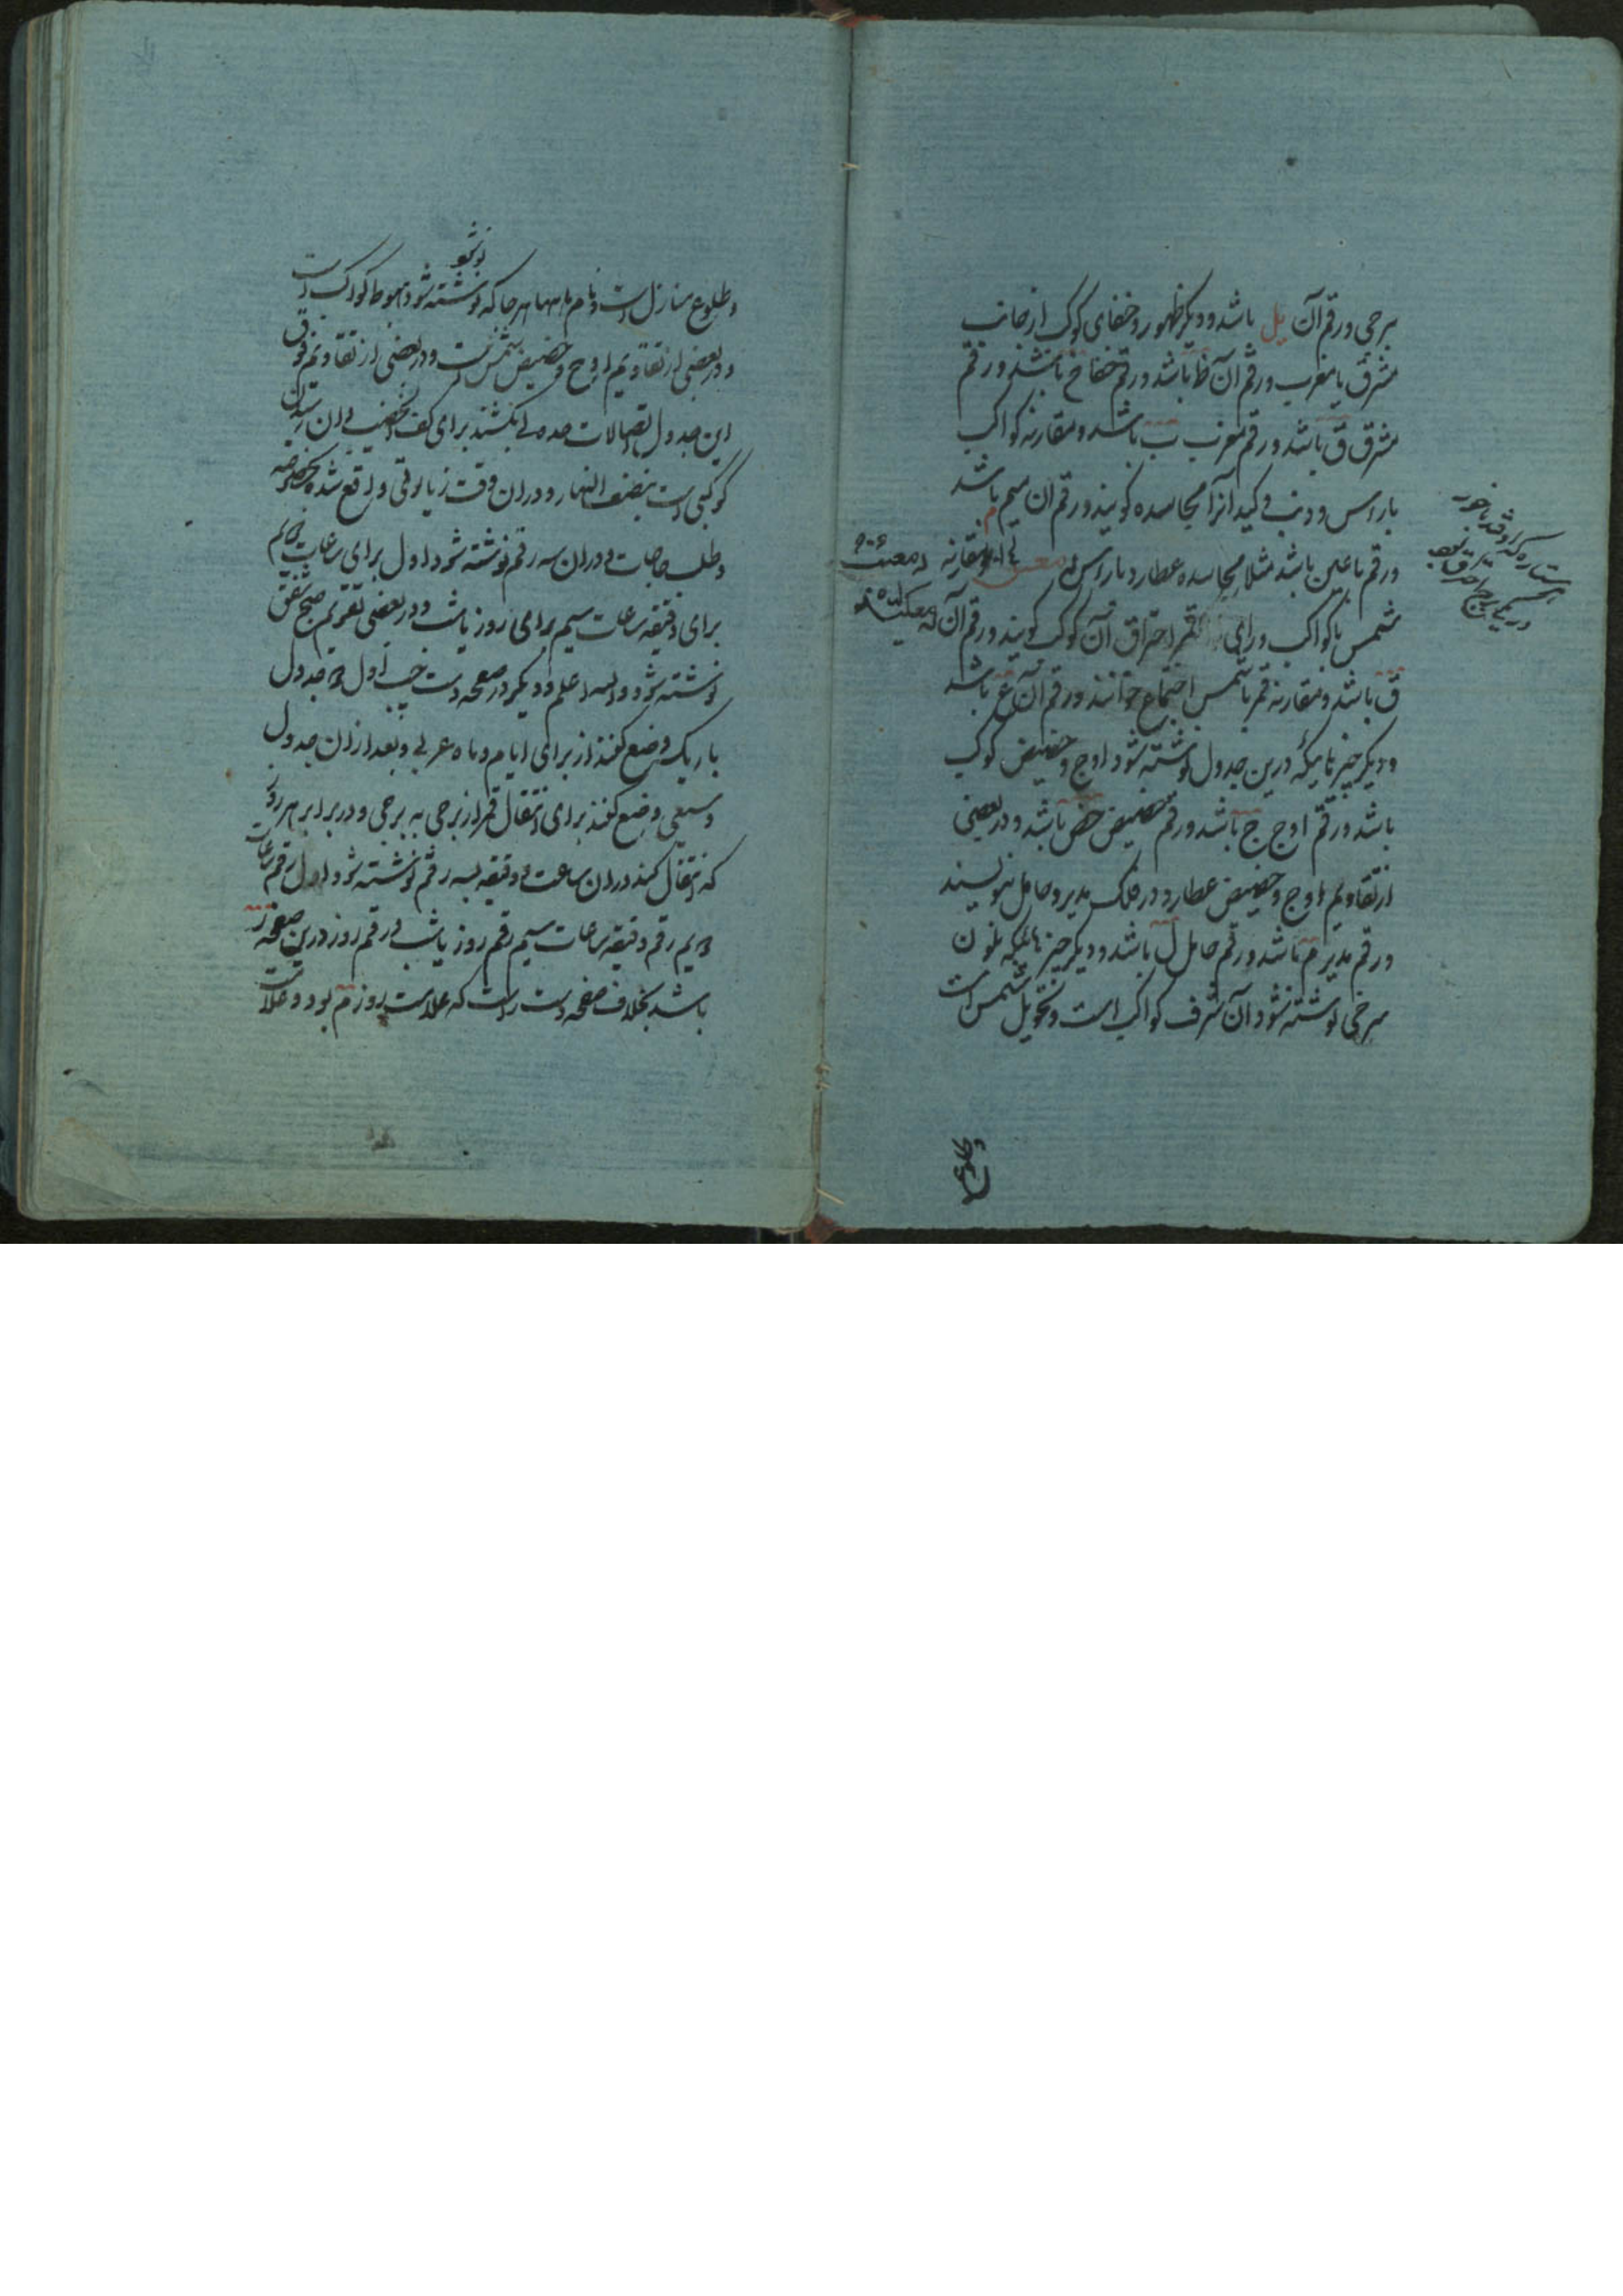 برجی ورقم آن یل باشد و دیگر ظهور و خفای کوکب از جانب
مشرق یا مغرب ورقم آن ظ باشد ورقم خفا خ باشد ورقم
مشرق ق باشد ورقم مغرب ب باشد و مقارنه کواکب
با راس و ذنب و کید آنرا مجاسده گویند ورقم آن میم باشد
ورقم با عین باشد مثلا مجاسده عطارد با راس مقارنه
شمس با کواکب ورای قمر احتراق آن کوکب گویند ورقم آن
ق باشد و مقارنه قمر با شمس اجتماع خوانند ورقم آن ع باشد
و دیگر چیزهائیکه درین جدول نوشته شود اوج و حضیض کوکب
باشد ورقم اوج ج باشد ورقم حضیض حض باشد و در بعضی
از تقاویم اوج و حضیض عطارد در فلک مدیر و حامل نویسند
ورقم مدیر م باشد ورقم حامل ل باشد و دیگر چیزهائیکه بلون
سرخی نوشته شود آن شرف کواکب است و تحویل شمس است
ستاره که
در یک برج
وطلوع
وطلوع منازل است و نام ماهها هر جا که نوشته شود هبوط کواکب است
و در بعضی از تقاویم اوج و حضیض شمس است و در بعضی از تقاویم فوق
این جدول اتصالات جدولی بکشند برای کف الخضیب و آن رسیدن
کوکبی است بنصف النهار و در آن وقت زیا وقتی واقع شده بخصوصه
وطلب حاجات و در آن سه رقم نوشته شود اول برای ساعات دویم
برای دقیقه ساعات سیم برای روز یا شب و در بعضی تقویم صبح شفق
نوشته شود والله اعلم و دیگر در صفحه دست چپ اول جدول
باریک وضع کنند از برای ایام و ماه عربی و بعد از آن جدول
وسیعی وضع کنند برای انتقال قمر از برجی به برجی و در برابر هر روز
که انتقال کند در آن ساعت و دقیقه سه رقم نوشته شود اول رقم ساعات
دویم رقم دقیقه ساعات سیم رقم روز یا شب و رقم روز درین صفحه ز
باشد بخلاف صفحه دست راست که علامت روز م بود و علامت